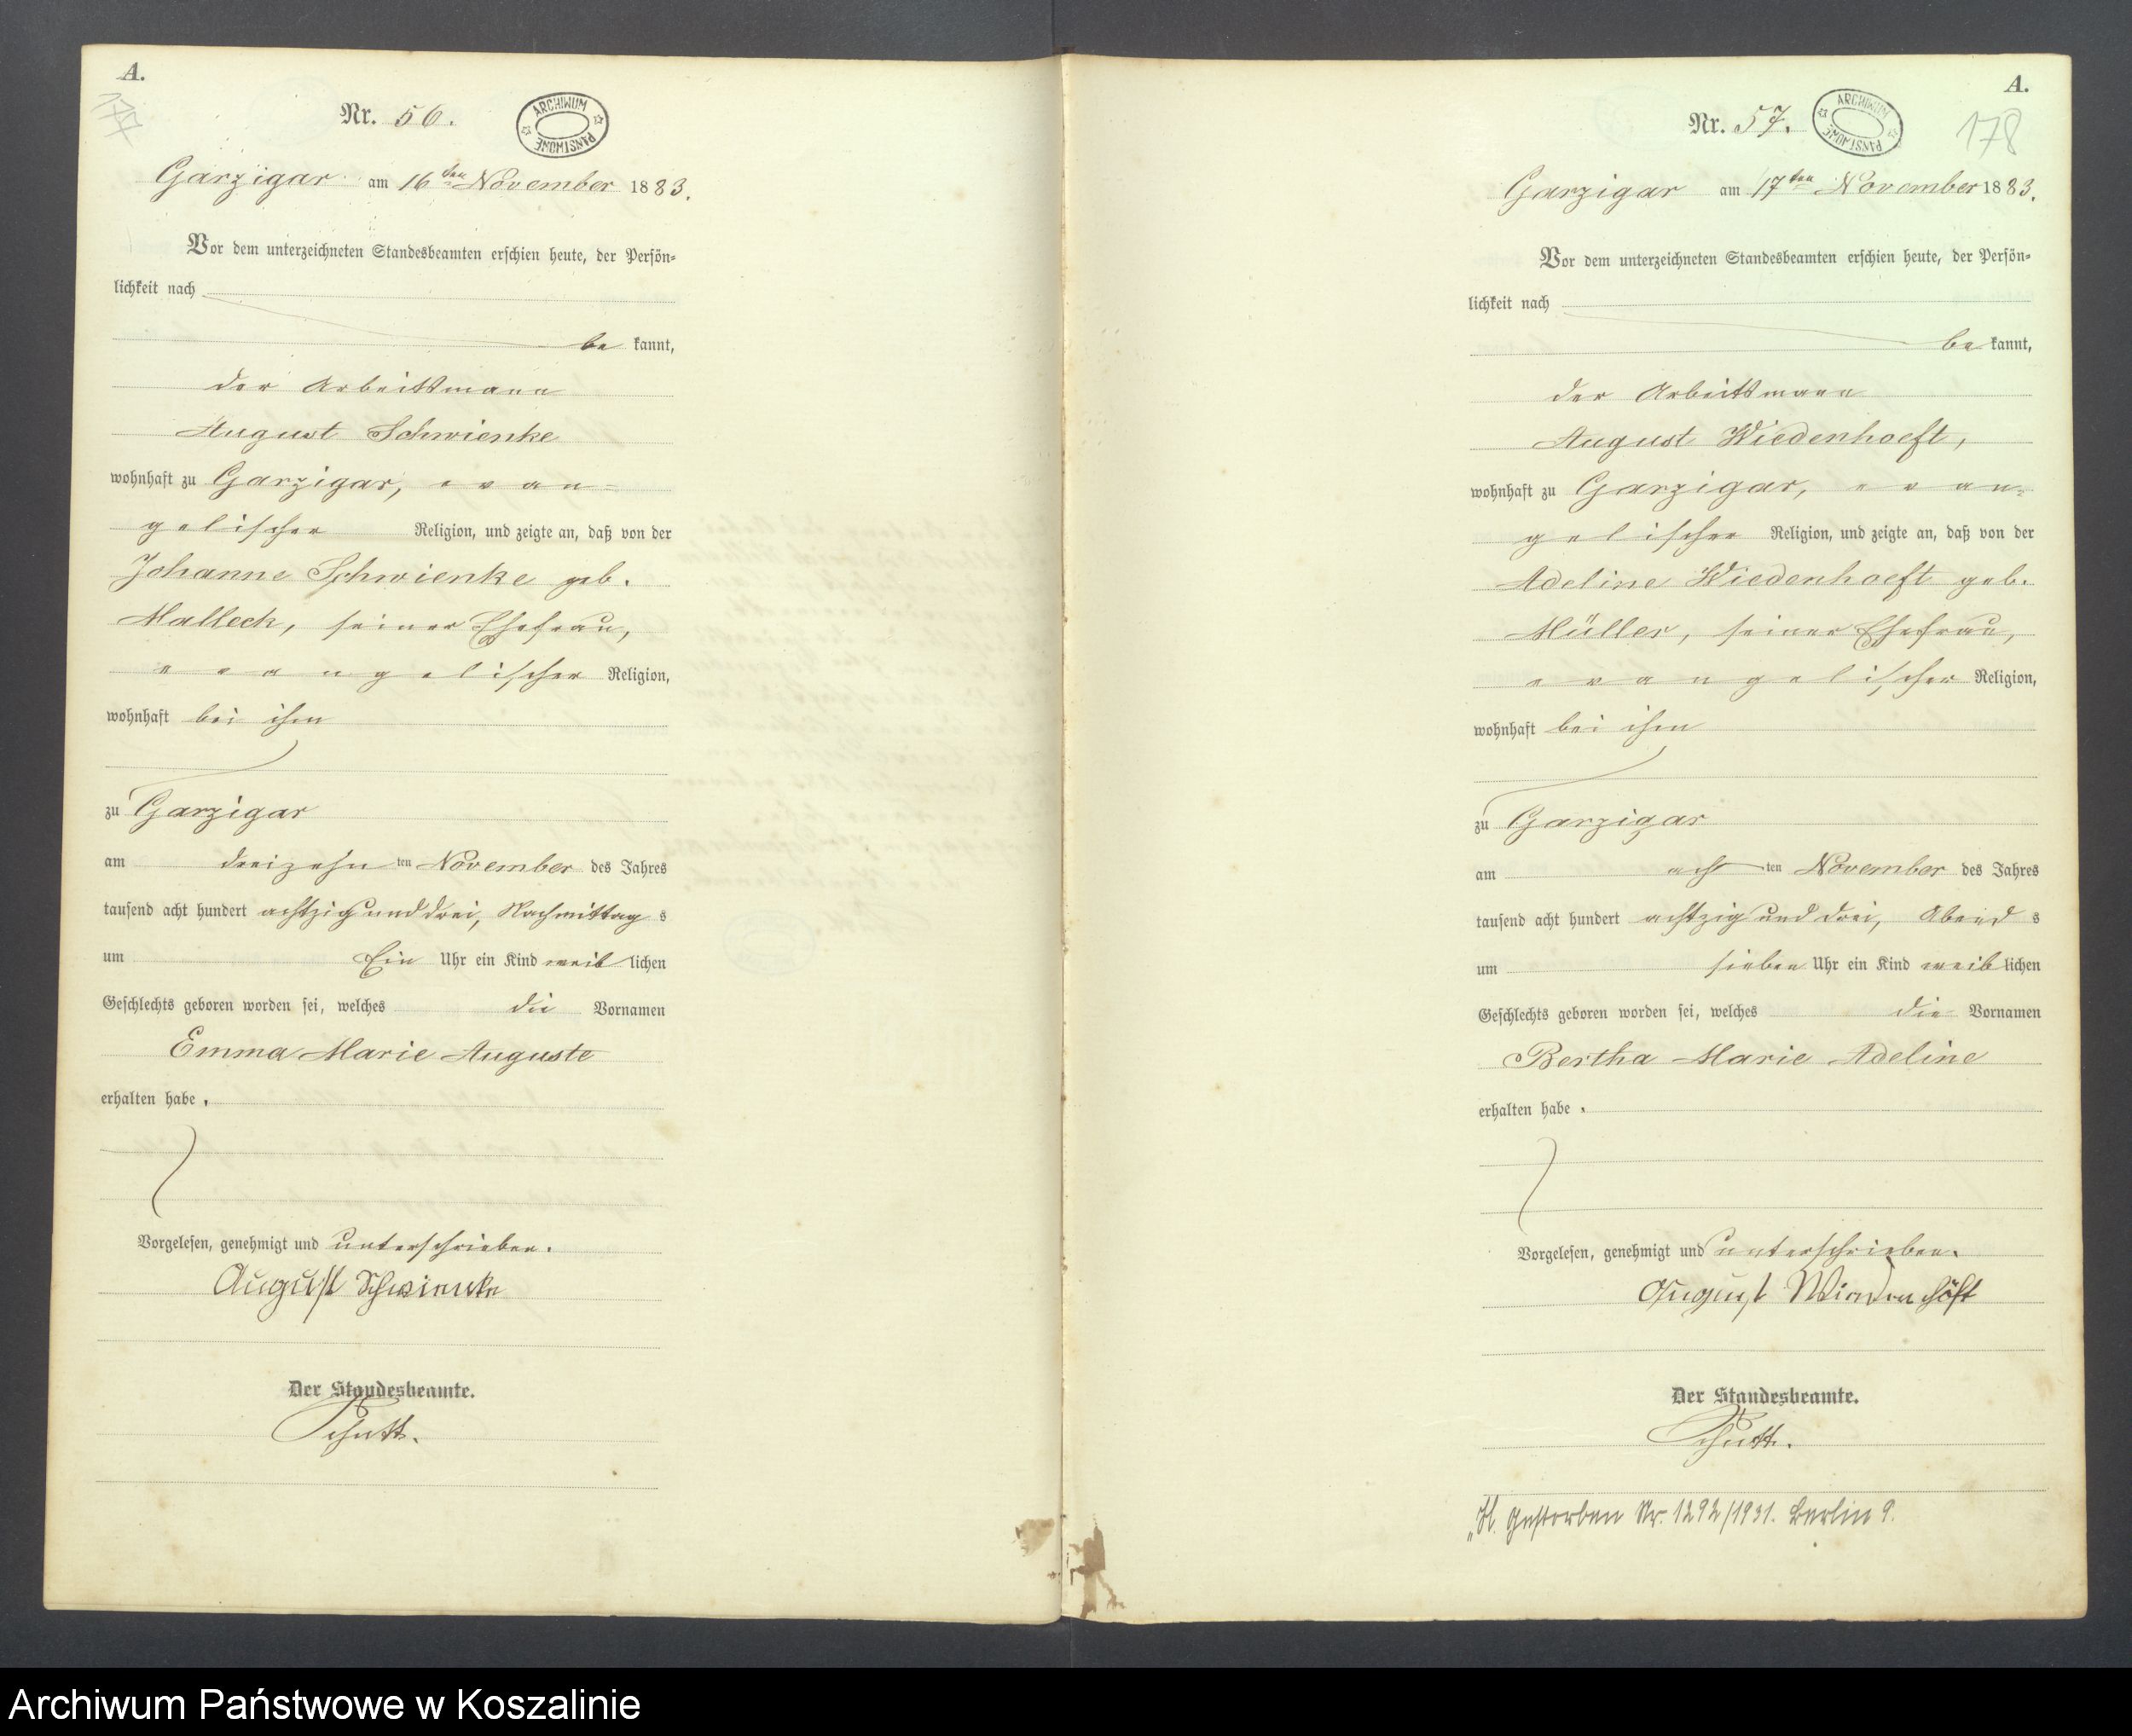 A.
177
Nr. 56.
ARCHIWUM PAŃSTWOWE
Garzigar am 16ten November 1883.
Vor dem unterzeichneten Standesbeamten erschien heute, der Persön-
lichkeit nach
be kannt,
der Arbeitsmann
August Schwienke
wohnhaft zu Garzigar, evan-
gelischer Religion, und zeigte an, daß von der
Johanne Schwienke geb.
Malleck, seiner Ehefrau,
evangelischer Religion,
wohnhaft bei ihm
zu Garzigar
am dreizehn ten November des Jahres
tausend acht hundert achtzig und drei, Nachmittag s
um Ein Uhr ein Kind weib lichen
Geschlechts geboren worden sei, welches die Vornamen
Emma Marie Auguste
erhalten habe.
Vorgelesen, genehmigt und unterschrieben.
August Schwienke
Der Standesbeamte.
A.
Nr. 57.
ARCHIWUM PAŃSTWOWE
178
Garzigar am 17ten November 1883.
Vor dem unterzeichneten Standesbeamten erschien heute, der Persön-
lichkeit nach
be kannt,
der Arbeitsmann
August Wiedenhoeft,
wohnhaft zu Garzigar, evan-
gelischer Religion, und zeigte an, daß von der
Adeline Wiedenhoeft geb.
Müller, seiner Ehefrau,
evangelischer Religion,
wohnhaft bei ihm
zu Garzigar
am ach ten November des Jahres
tausend acht hundert achtzig und drei, Abend s
um sieben Uhr ein Kind weib lichen
Geschlechts geboren worden sei, welches die Vornamen
Bertha Marie Adeline
erhalten habe.
Vorgelesen, genehmigt und unterschrieben.
August Wiedenhöft
Der Standesbeamte.
Gestorben Nr. 1292/1931. Berlin 9.
Archiwum Państwowe w Koszalinie